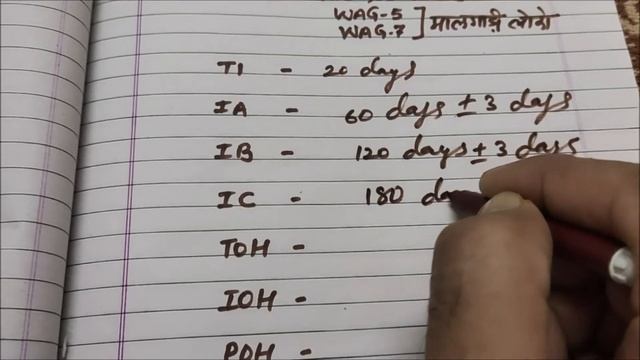 WAG-5
WAG-7 ] मालगाड़ी लोको
TI - 20 days
IA - 60 days ± 3 days
IB - 120 days ± 3 days
IC - 180 da
TOH -
IOH -
POH -